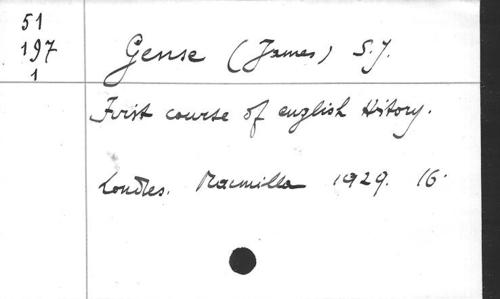 51
197
1
Gense (James) S.J.
First course of english History.
Londres. Macmilla 1929. 16°